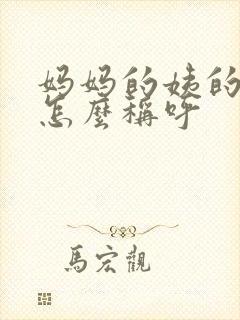 妈妈的姨的
怎麼稱呼
馬宏觀